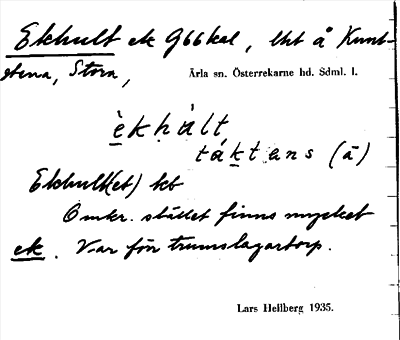 Ekhult ek G66kal, lht å Kunb-
stena, Stora,
Ärla sn. Österrekarne hd. Sdml. l.
èkḥàlt
táktans (ā)
Ekhult(et) kb
Omkr. stället finns mycket
ek. Var förr trumslagartorp.
Lars Hellberg 1935.